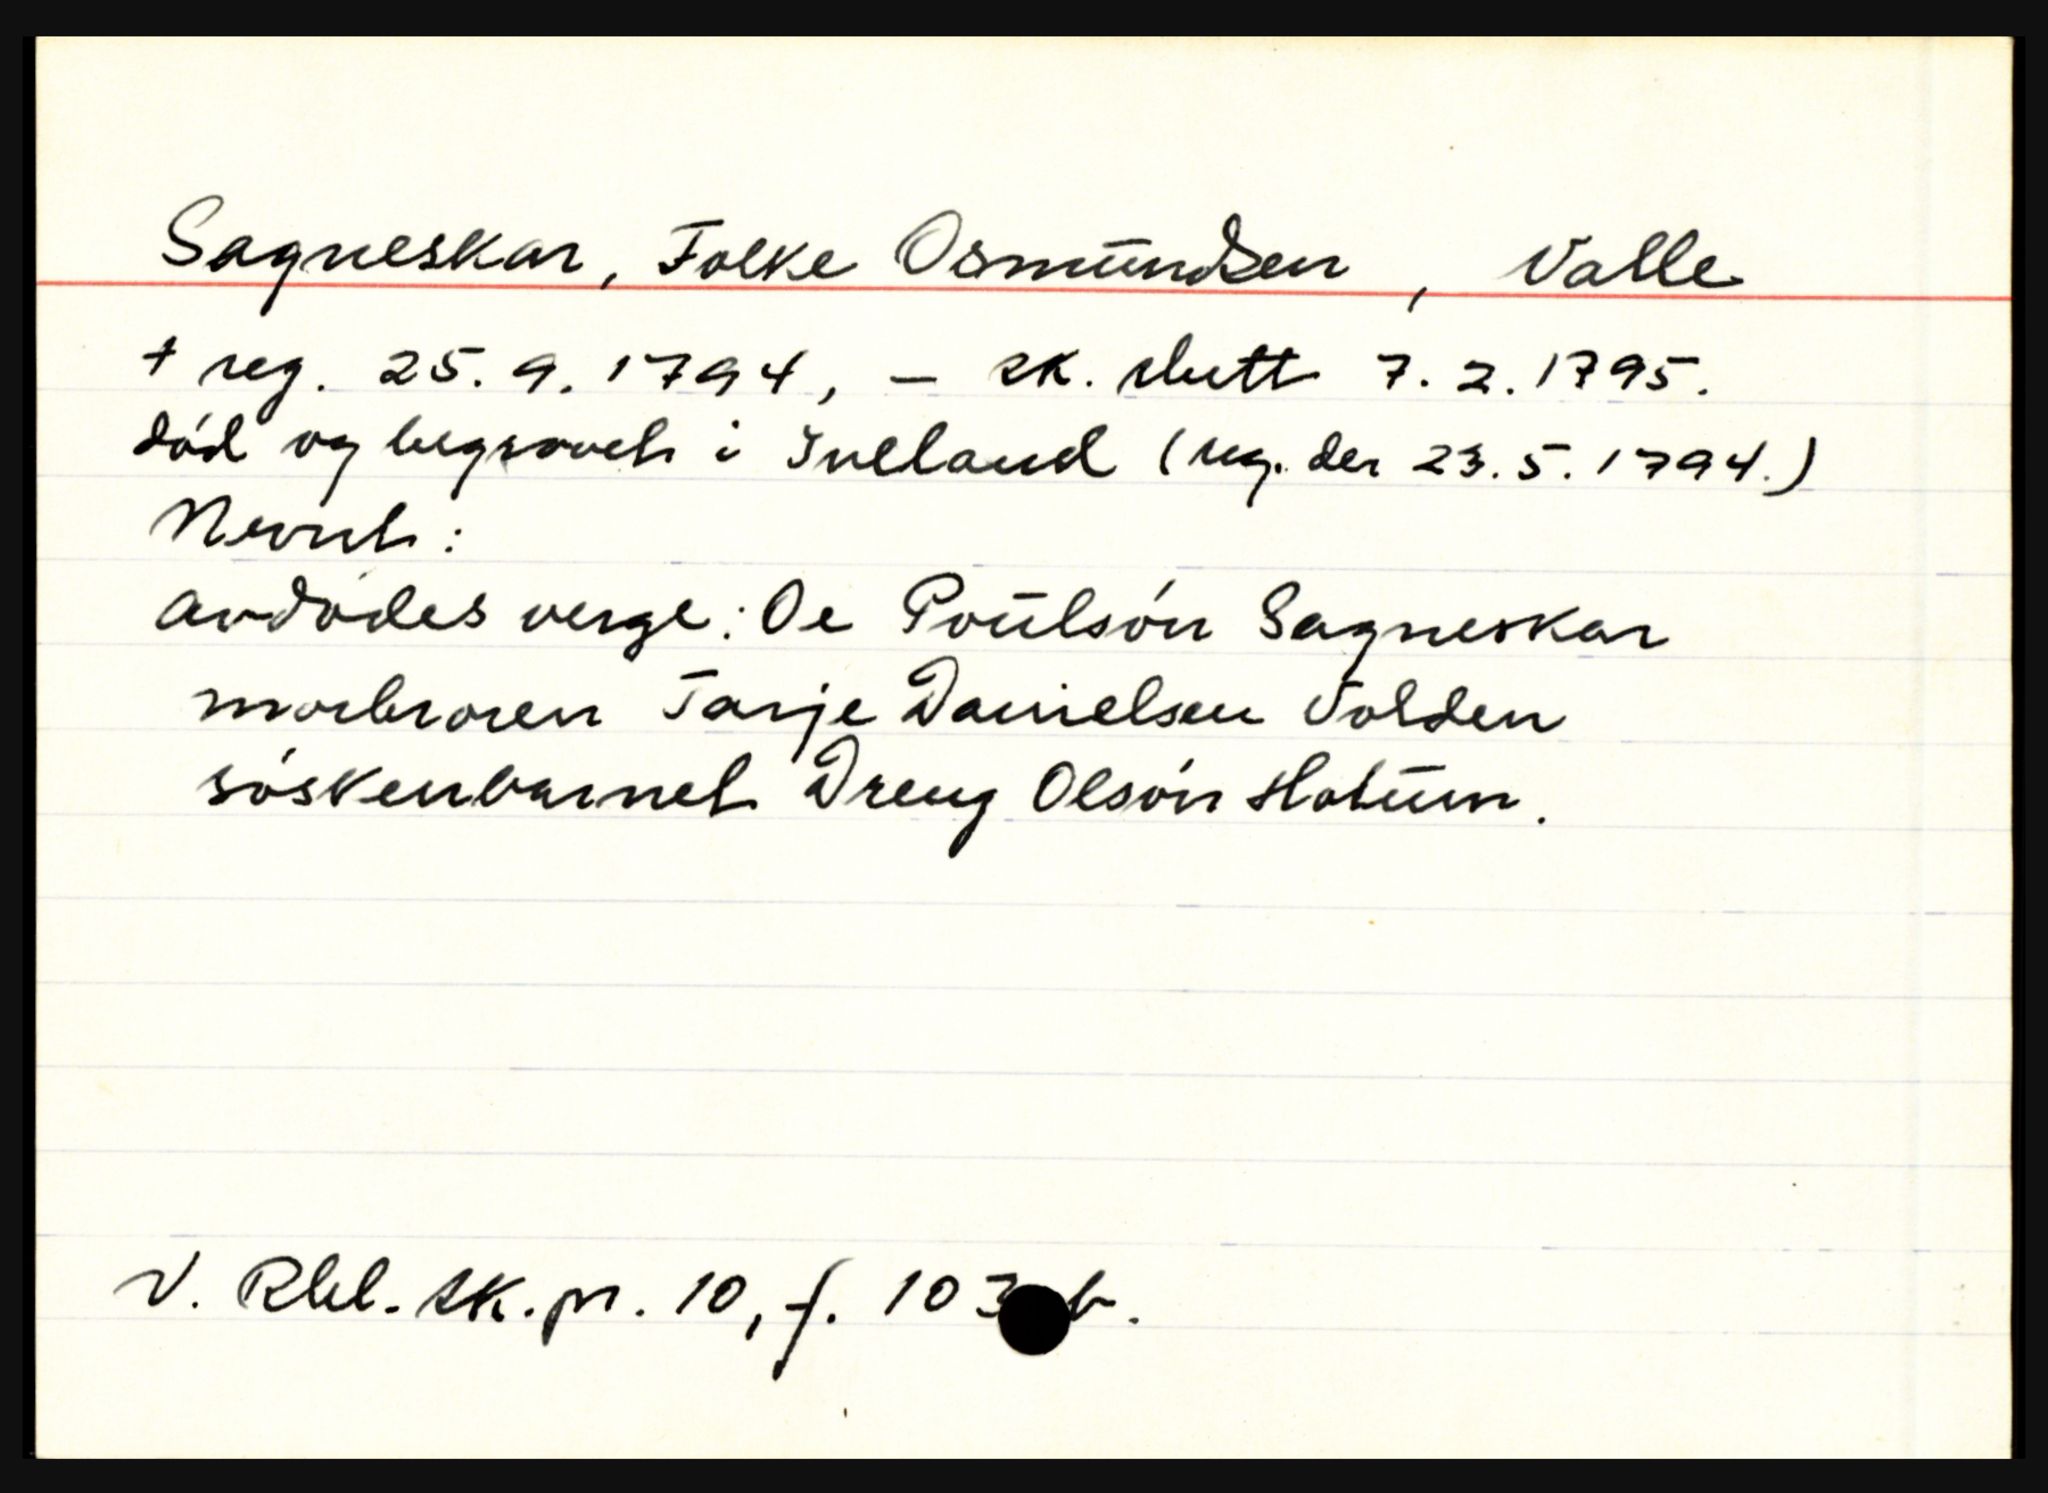 Sagneskar, Folke Osmundsen, Valle
† reg. 25.9.1794, – sk. slutt 7.2.1795.
død og begravet i Iveland (reg. der 23.5.1794.)
Nevnt:
avdødes verge: Oe Poulsøn Sagneskar
morbroren Tarje Danielsen Volden
søskenbarnet Dreng Olsøn Hotum.
V. Rbl. sk.pr. 10, f. 103 b.